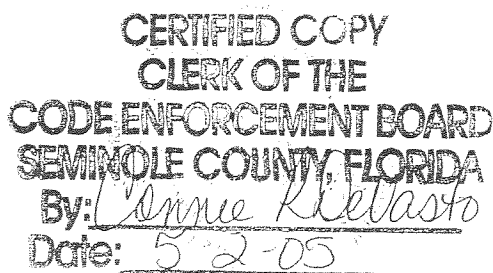 CERTIFIED COPY
CLERK OF THE
CODE ENFORCEMENT BOARD
SEMINOLE COUNTY, FLORIDA
By: Connie R DeVasto
Date: 5-2-05